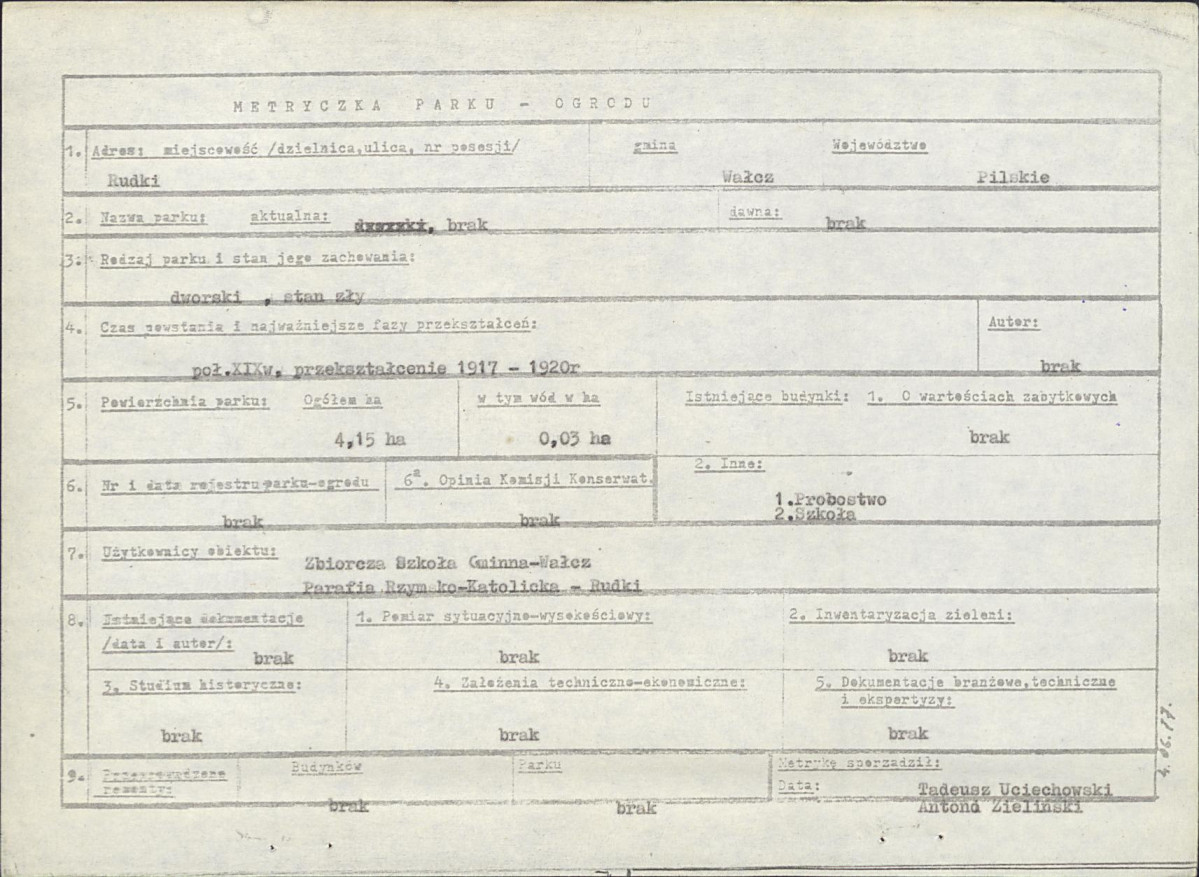 METRYCZKA PARKU - OGRODU
1. Adres: miejscowość /dzielnica,ulica, nr posesji/ gmina Województwo
Rudki Wałcz Pilskie
2. Nazwa parku: aktualna: brak dawna: brak
3. Rodzaj parku i stan jego zachowania:
dworski , stan zły
4. Czas powstania i najważniejsze fazy przekształceń: Autor:
poł.XIXw, przekształcenie 1917 - 1920r brak
5. Powierzchnia parku: Ogółem ha w tym wód w ha Istniejące budynki: 1. O wartościach zabytkowych
4,15 ha 0,03 ha brak
6. Nr i data rejestru parku-ogrodu 6a. Opinia Komisji Konserwat. 2. Inne:
brak brak 1.Probostwo
2.Szkoła
7. Użytkownicy obiektu: Zbiorcza Szkoła Gminna-Wałcz
Parafia Rzymsko-Katolicka - Rudki
8. Istniejąca dokumentacje 1. Pomiar sytuacyjno-wysokościowy: 2. Inwentaryzacja zieleni:
/data i autor/: brak brak brak
3. Studium historyczne: 4. Założenia techniczno-ekonomiczne: 5. Dokumentacje branżowe,techniczne
i ekspertyzy:
brak brak brak
9. Przeprowadzone remonty: Budynków Parku Metrykę sporządził:
brak brak Data: Tadeusz Uciechowski
Antoni Zieliński
4.06.87.